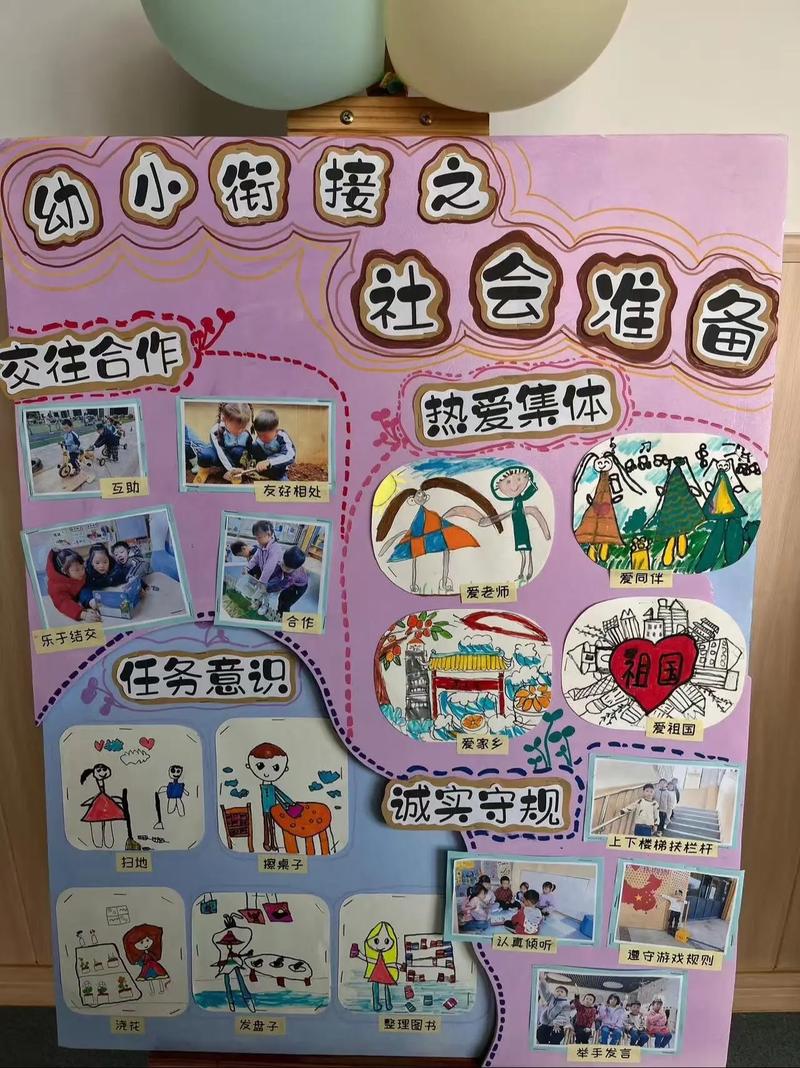 幼小衔接之
社会准备
交往合作
互助
友好相处
乐于结交
合作
热爱集体
爱老师
爱同伴
爱家乡
祖国
爱祖国
任务意识
扫地
擦桌子
浇花
发盘子
整理图书
诚实守规
上下楼梯扶栏杆
认真倾听
遵守游戏规则
举手发言